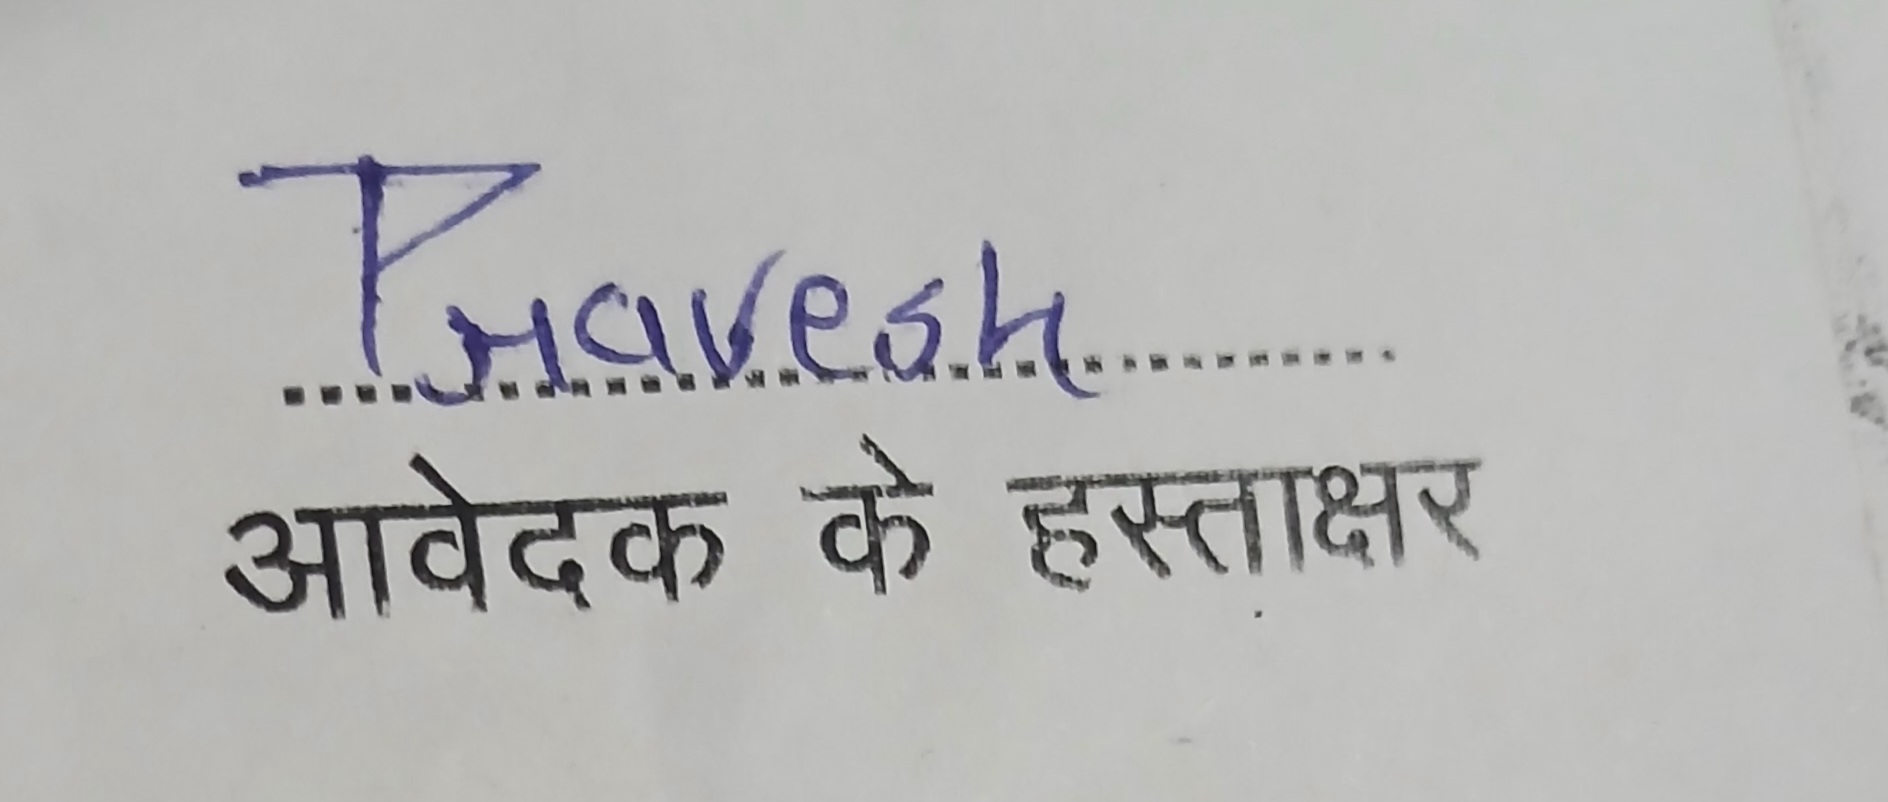 Pravesh
आवेदक के हस्ताक्षर